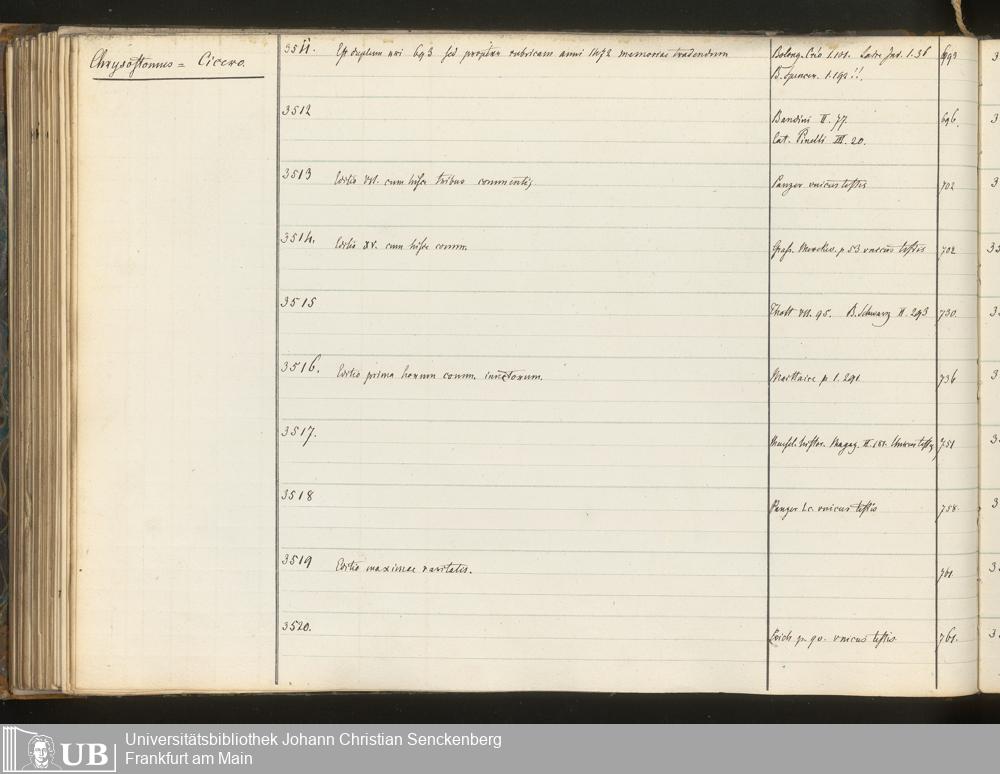 Chrysostomus = Cicero.
3511. Est duplum nri 693 sed propter rubricam anni 1472 memoriae tradendum
B. Spencer. 1.192!!.
693
3512
Bandini II. 77.
Cat. Pinelli III. 20.
696.
3513 Editio Vet. cum hisce tribus commentis
Panzer unicus testis
702
3514. Editio XV. cum hisce comm.
p. 53 unicus testis
702
3515
Thott VII. 95. B. Schwarz II. 293
730.
3516. Editio prima horum comm. iunctorum.
Maittaire p 1. 291.
736
3517.
Magaz. Unicus testis
751
3518
Panzer l.c. unicus testis
758.
3519 Editio maximae raritatis.
761.
3520.
p. 90. unicus testis.
761.
UB
Universitätsbibliothek Johann Christian Senckenberg
Frankfurt am Main